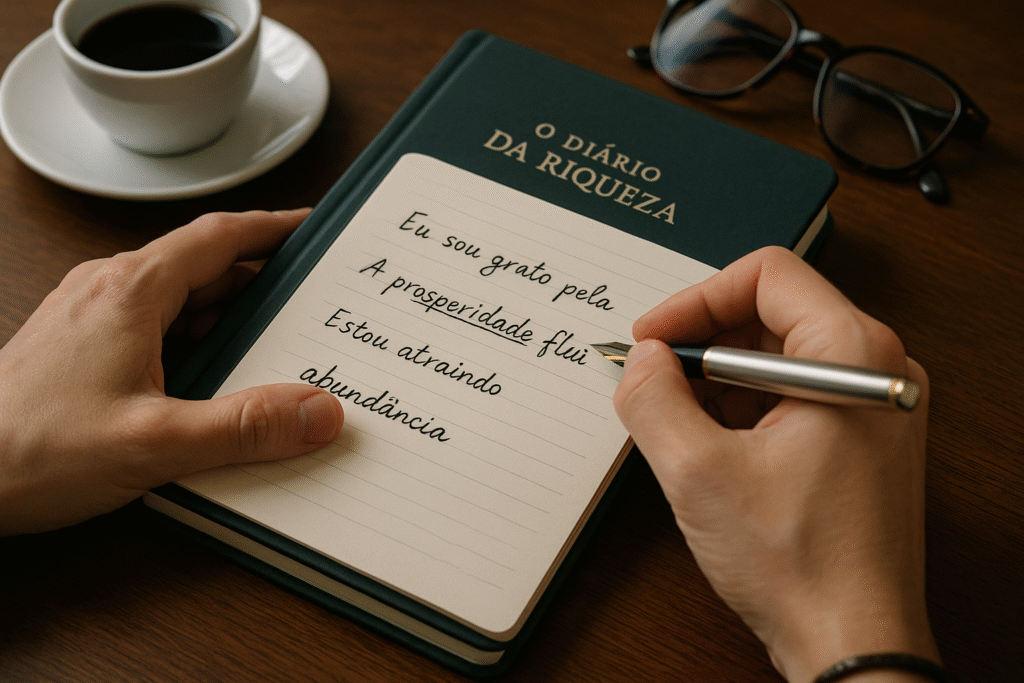 O DIÁRIO
DA RIQUEZA
Eu sou grato pela
A prosperidade flui
Estou atraindo
abundância